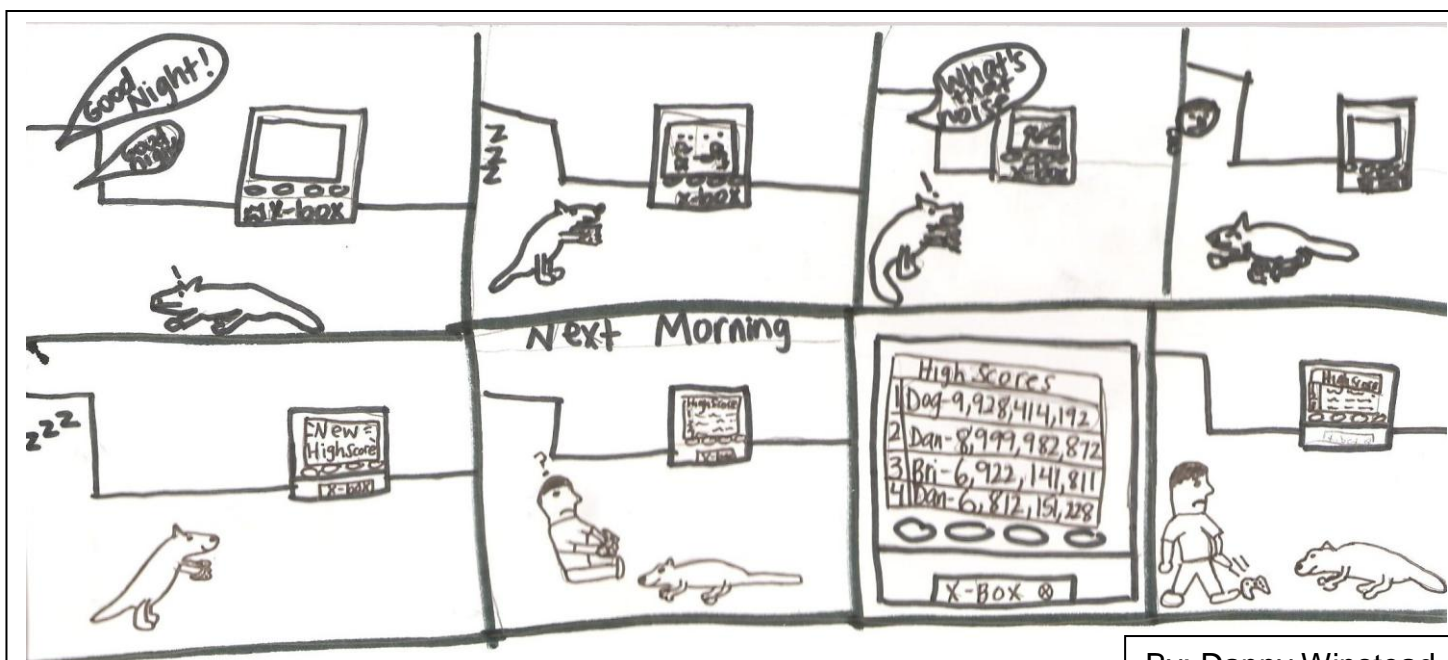 Good
Night!
Good
Night
X-box
Z
Z
Z
X-box
What's
that
noise
X-box
zzz
New
HighScore
X-box
Next Morning
HighScore
X-box
High Scores
1 Dog-9,928,414,192
2 Dan-8,999,982,872
3 Bri-6,922,141,811
4 Dan-6,812,151,228
X-BOX
HighScore
By: Danny Winstead